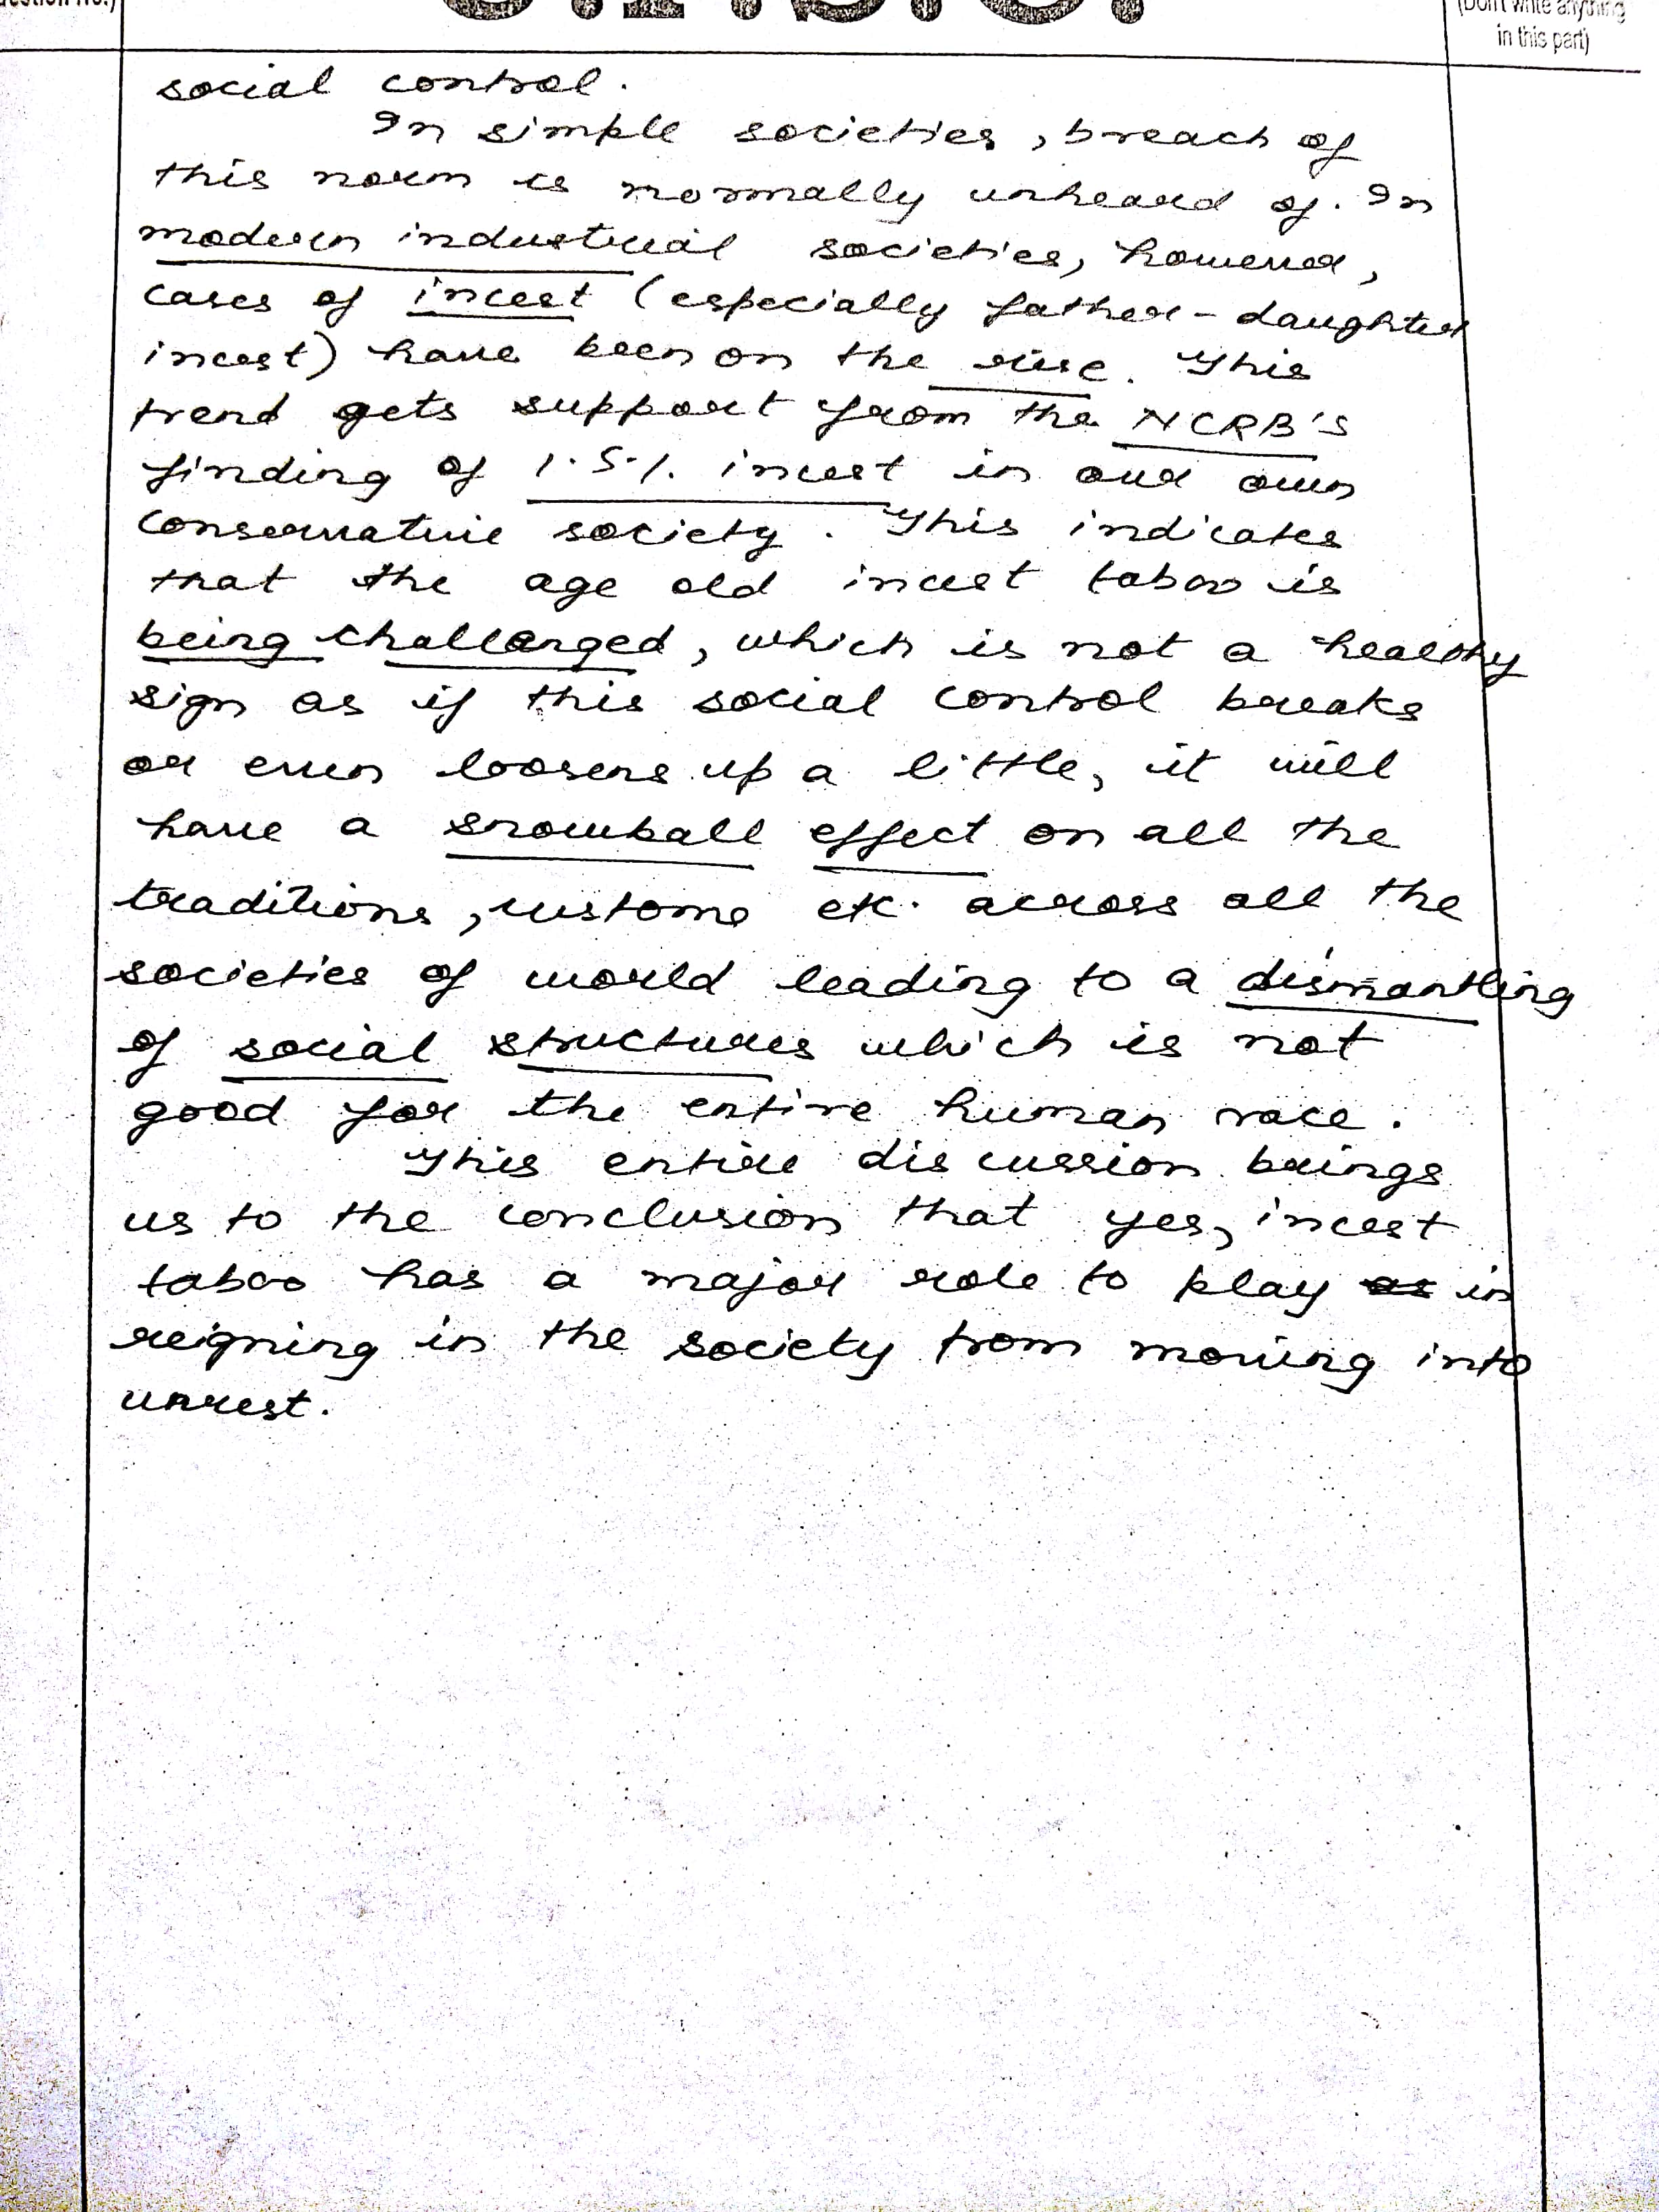 (Don't write anything
in this part)
social control.
In simple societies, breach of
this norm is normally unheard of. In
modern industrial societies, however,
cases of incest (especially father-daughter
incest) have been on the rise. This
trend gets support from the NCRB's
finding of 1.5%. incest in our own
conservative society. This indicates
that the age old incest taboo is
being challenged, which is not a healthy
sign as if this social control breaks
or even loosens up a little, it will
have a snowball effect on all the
traditions, customs etc. across all the
societies of world leading to a dismantling
of social structures which is not
good for the entire human race.
This entire discussion brings
us to the conclusion that yes, incest
taboo has a major role to play as in
reigning in the society from moving into
unrest.